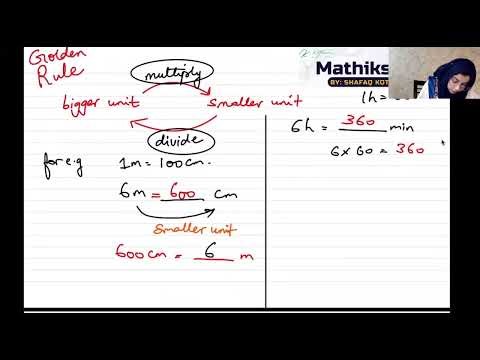 Golden
Rule
multiply
bigger unit
smaller unit
divide
for e.g
1m = 100cm.
6m = 600 cm
smaller unit
600cm = 6 m
Mathiks
BY: SHAFAQ KOT
1h =
6h = 360 min
6 × 60 = 360